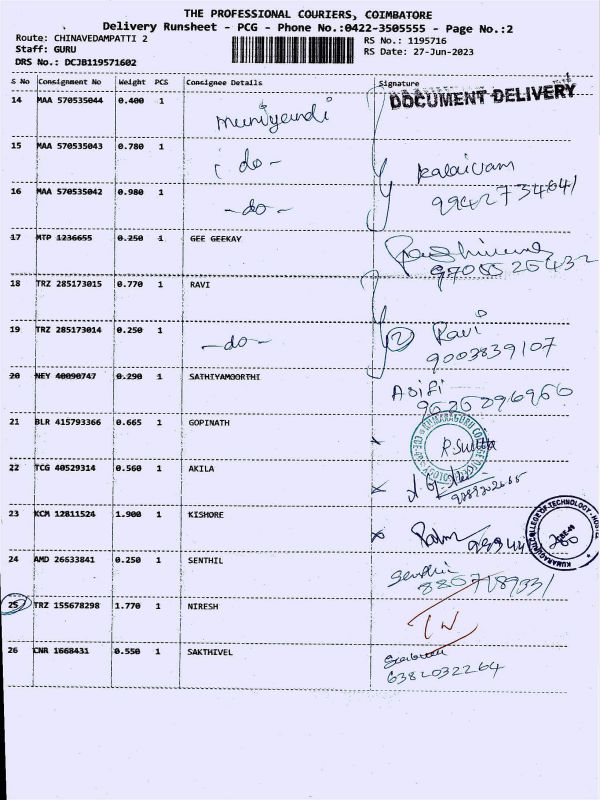 THE PROFESSIONAL COURIERS, COIMBATORE
Delivery Runsheet - PCG - Phone No.:0422-3505555 - Page No.:2
Route: CHINAVEDAMPATTI 2
RS No.: 1195716
Staff: GURU
RS Date: 27-Jun-2023
DRS No.: DCJB119571602
S No Consignment No Weight PCS Consignee Details Signature
DOCUMENT DELIVERY
14 MAA 570535044 0.400 1 muniyandi
15 MAA 570535043 0.780 1 do-
kalaivani
16 MAA 570535042 0.980 1 -do-
17 MTP 1236655 0.250 1 GEE GEEKAY
18 TRZ 285173015 0.770 1 RAVI
19 TRZ 285173014 0.250 1 -do- 2 Ravi
9003839107
20 NEY 40090747 0.290 1 SATHIYAMOORTHI
21 BLR 415793366 0.665 1 GOPINATH
22 TCG 40529314 0.560 1 AKILA
23 KCM 12811524 1.900 1 KISHORE
24 AMD 26633841 0.250 1 SENTHIL
25 TRZ 155678298 1.770 1 NIRESH
26 CNR 1668431 0.550 1 SAKTHIVEL
6382032264